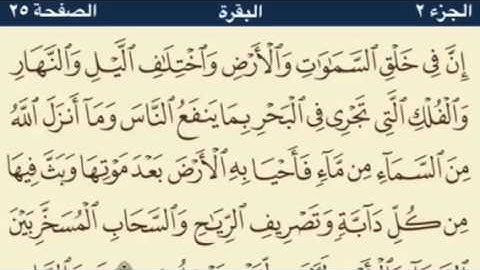 الجزء ٢ البقرة الصفحة ٢٥
إِنَّ فِي خَلْقِ السَّمَٰوَٰتِ وَالْأَرْضِ وَاخْتِلَٰفِ الَّيْلِ وَالنَّهَارِ
وَالْفُلْكِ الَّتِي تَجْرِي فِي الْبَحْرِ بِمَا يَنفَعُ النَّاسَ وَمَآ أَنزَلَ اللَّهُ
مِنَ السَّمَآءِ مِن مَّآءٍ فَأَحْيَا بِهِ الْأَرْضَ بَعْدَ مَوْتِهَا وَبَثَّ فِيهَا
مِن كُلِّ دَآبَّةٍ وَتَصْرِيفِ الرِّيَٰحِ وَالسَّحَابِ الْمُسَخَّرِ بَيْنَ